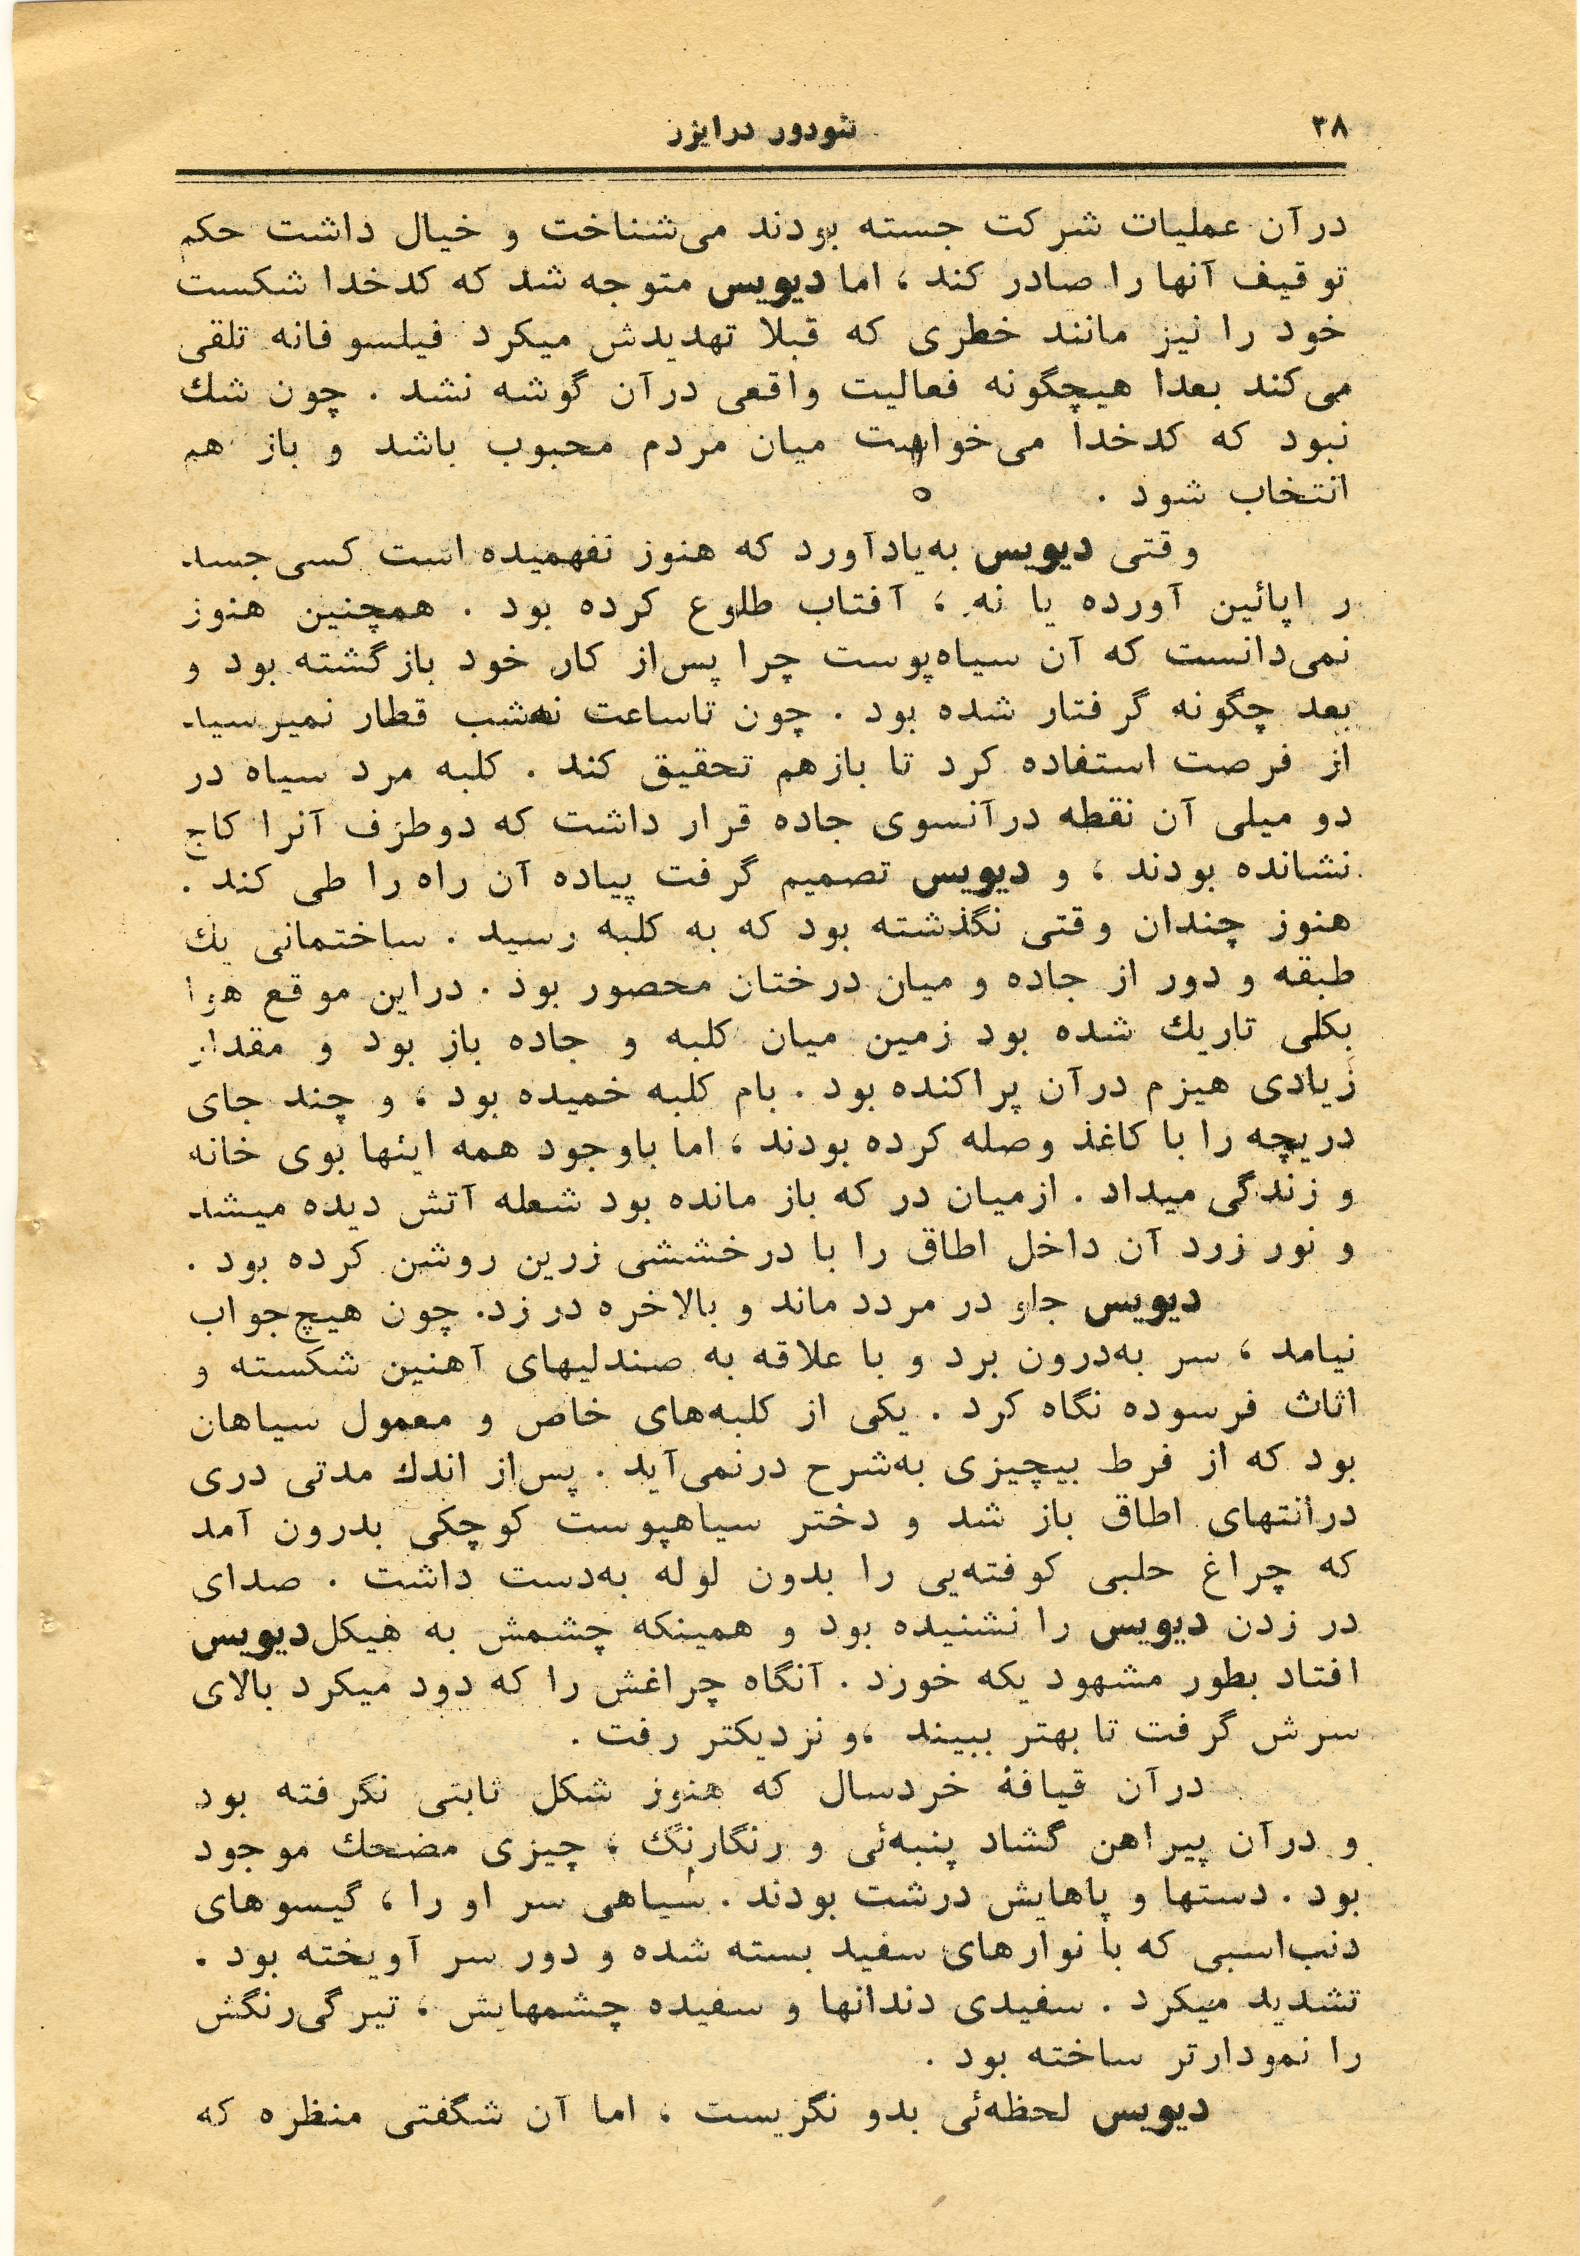 ۳۸
شودور درایزر
درآن عملیات شرکت جسته بودند می‌شناخت و خیال داشت حکم
توقیف آنها را صادر کند ، اما دیویس متوجه شد که کدخدا شکست
خود را نیز مانند خطری که قبلا تهدیدش میکرد فیلسوفانه تلقی
می‌کند بعدا هیچگونه فعالیت واقعی درآن گوشه نشد . چون شك
نبود که کدخدا می‌خواست میان مردم محبوب باشد و باز هم
انتخاب شود .
وقتی دیویس به‌یادآورد که هنوز نفهمیده است کسی‌جسد
را پائین آورده یا نه ، آفتاب طلوع کرده بود . همچنین هنوز
نمی‌دانست که آن سیاه‌پوست چرا پس‌از کار خود بازگشته بود و
بعد چگونه گرفتار شده بود . چون تاساعت نه‌شب قطار نمیرسید
از فرصت استفاده کرد تا بازهم تحقیق کند . کلبه مرد سیاه در
دو میلی آن نقطه درآنسوی جاده قرار داشت که دوطرف آنرا کاج
نشانده بودند ، و دیویس تصمیم گرفت پیاده آن راه را طی کند .
هنوز چندان وقتی نگذشته بود که به کلبه رسید . ساختمانی یك
طبقه و دور از جاده و میان درختان محصور بود . دراین موقع هوا
بکلی تاریك شده بود زمین میان کلبه و جاده باز بود و مقدار
زیادی هیزم درآن پراکنده بود . بام کلبه خمیده بود ، و چند جای
دریچه را با کاغذ وصله کرده بودند ، اما باوجود همه اینها بوی خانه
و زندگی میداد . ازمیان در که باز مانده بود شعله آتش دیده میشد
و نور زرد آن داخل اطاق را با درخششی زرین روشن کرده بود .
دیویس جلو در مردد ماند و بالاخره در زد. چون هیچ‌جواب
نیامد ، سر به‌درون برد و با علاقه به صندلیهای آهنین شکسته و
اثاث فرسوده نگاه کرد . یکی از کلبه‌های خاص و معمول سیاهان
بود که از فرط بیچیزی به‌شرح درنمی‌آید . پس‌از اندك مدتی دری
درانتهای اطاق باز شد و دختر سیاهپوست کوچکی بدرون آمد
که چراغ حلبی کوفته‌یی را بدون لوله به‌دست داشت . صدای
در زدن دیویس را نشنیده بود و همینکه چشمش به هیکل‌دیویس
افتاد بطور مشهود یکه خورد . آنگاه چراغش را که دود میکرد بالای
سرش گرفت تا بهتر ببیند ،و نزدیکتر رفت .
درآن قیافهٔ خردسال که هنوز شکل ثابتی نگرفته بود
و درآن پیراهن گشاد پنبه‌ئی و رنگارنگ ، چیزی مضحك موجود
بود . دستها و پاهایش درشت بودند . سیاهی سر او را ، گیسوهای
دنب‌اسبی که با نوارهای سفید بسته شده و دور سر آویخته بود .
تشدید میکرد . سفیدی دندانها و سفیده چشمهایش ، تیرگی‌رنگش
را نمودارتر ساخته بود .
دیویس لحظه‌ئی بدو نگریست ، اما آن شگفتی منظره که